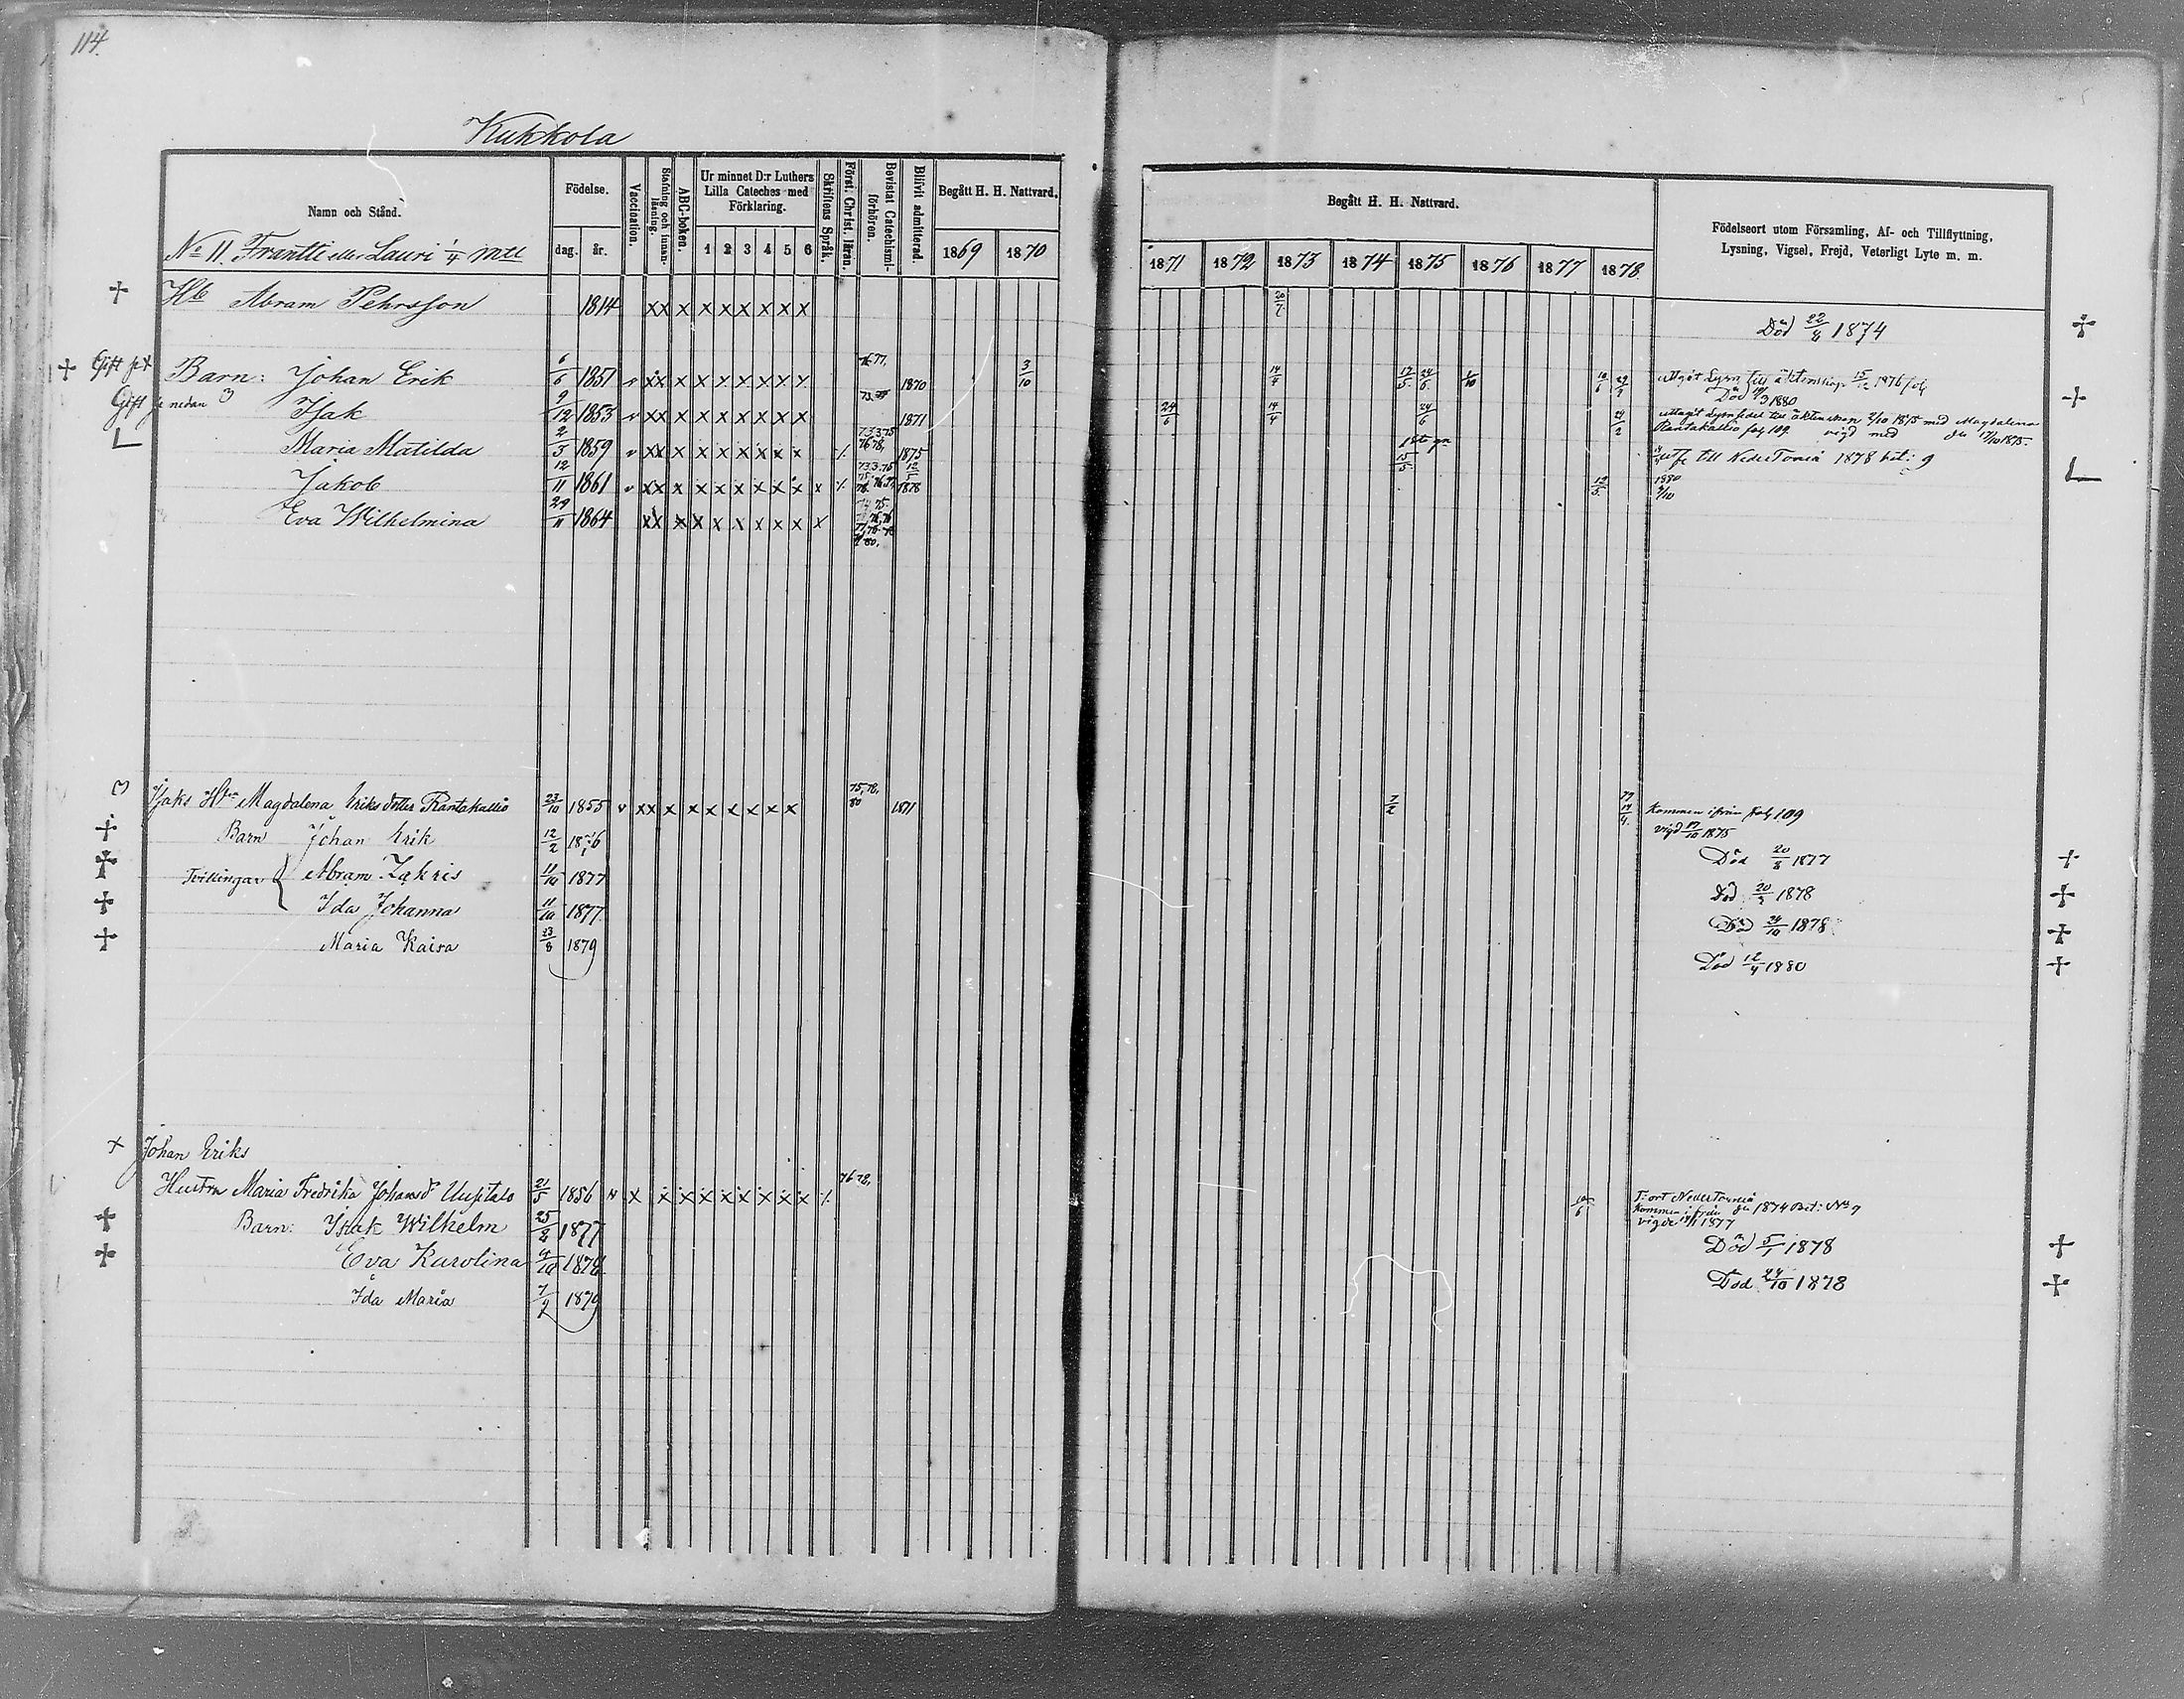 114.
Kukkola
Namn och Stånd.
Födelse.
dag.
år.
Vaccination.
Stafning och innan-läsning.
ABC-boken.
Ur minnet D:r Luthers
Lilla Cateches med
Förklaring.
1 2 3 4 5 6
Skriftens Språk.
Först. Christ. läran.
Bevistat Catechismi-förhören.
Blivit admitterad.
Begått H. H. Nattvard.
1869 1870
Begått H. H. Nattvard.
1871 1872 1873 1874 1875 1876 1877 1878.
Födelseort utom Församling, Af- och Tillflyttning,
Lysning, Vigsel, Frejd, Veterligt Lyte m. m.
No 11. Frantti eller Lauri 1/4 mtl
Hb Abram Pehrsson 1814 x x x x x x x x x 20/7 Död 22/4 1874
Gift Barn: Johan Erik 6/6 1851 v x x x x x x x x x 76 77, 1870 3/10 14/4 17/5 24/6 1/10 uttagit Lysn. till äktenskap 15/12 1876
Död 1880
Gift nedan Isak 9/12 1853 v x x x x x x x x x 1871 24/6 14/4 24/6 uttagit Lysn sedel till äktenskap 2/10 1875 med Magdalena
Rantakallio fol. 109. vigd med den 17/10 1875.
Maria Matilda 2/5 1859 v x x x x x x x x x 1875 15/5 till Neder Torneå 1878 bet: 9
Jakob 12/11 1861 v x x x x x x x x x x 12/5 1878 12/5 1880
Eva Wilhelmina 29/11 1864 x x x x x x x x x x
Isaks Hru Magdalena Eriksdotter Rantakallio 23/10 1855 v x x x x x x x x x 75, 78, 80 1871 7/2 Kommen ifrån fol. 109
vigd 17/10 1875
Barn Johan Erik 12/2 1876 Död 20/8 1877
Tvillingar Abram Zakris 11/10 1877 Död 20/2 1878
Ida Johanna 11/10 1877 Död 24/10 1878
Maria Kaisa 23/8 1879 Död 12/4 1880
Johan Eriks
Hustru Maria Fredrika Johansd:r Uusitalo 21/5 1856 v x x x x x x x x x 76 78, F: ort Neder Torneå
Kommen ifrån 1874 Bet: No 9
vigde 1877
Barn: Isak Wilhelm 25/2 1877 Död 5/1 1878
Eva Karolina 4/10 1878 Död 24/10 1878
Ida Maria 1879